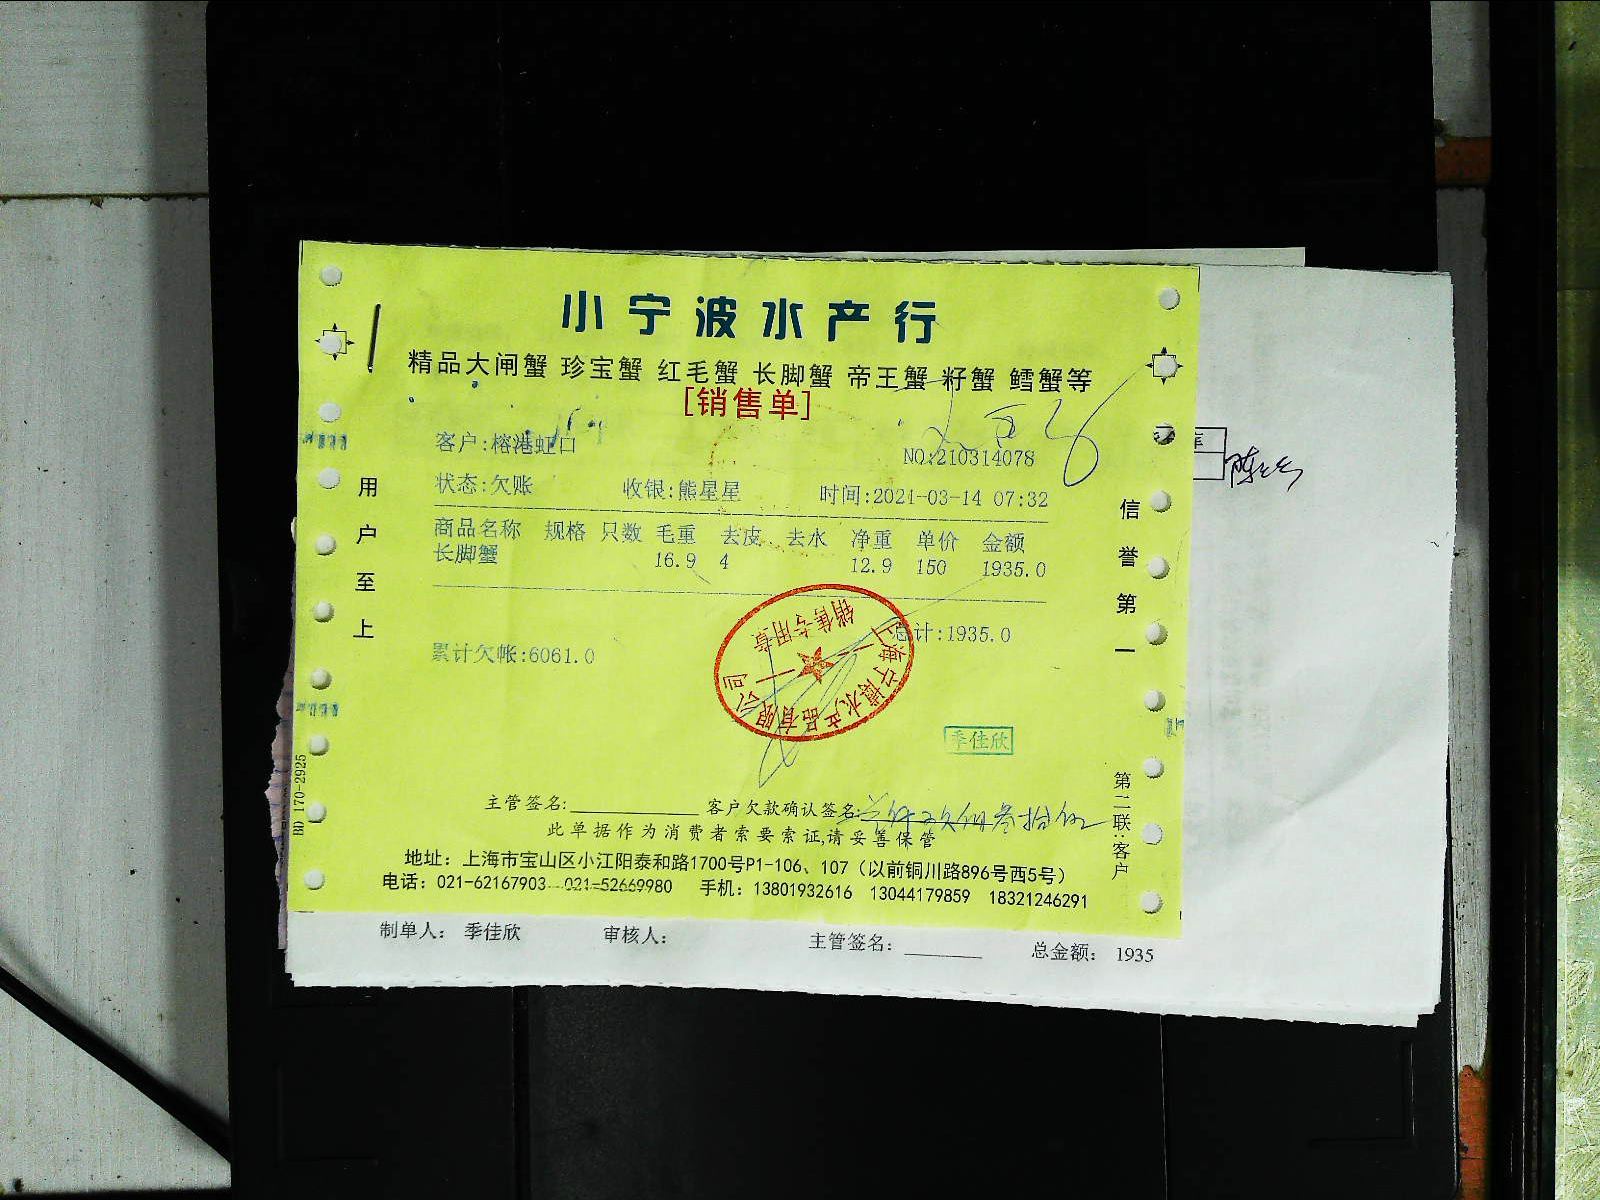 小宁波水产行
精品大闸蟹 珍宝蟹 红毛蟹 长脚蟹 帝王蟹 籽蟹 鳕蟹等
[销售单]
客户:榕港虹口
NO:210314078
状态:欠账 收银:熊星星 时间:2021-03-14 07:32
商品名称 规格 只数 毛重 去皮 去水 净重 单价 金额
长脚蟹 16.9 4 12.9 150 1935.0
总计:1935.0
累计欠帐:6061.0
销售专用章
上海宁博水产品有限公司
季佳欣
用户至上
信誉第一
第二联:客户
BD 170-2925
主管签名: 客户欠款确认签名:
此单据作为消费者索要索证,请妥善保管
地址：上海市宝山区小江阳泰和路1700号P1-106、107（以前铜川路896号西5号）
电话：021-62167903 021-52669980 手机：13801932616 13044179859 18321246291
制单人： 季佳欣 审核人： 主管签名： 总金额： 1935